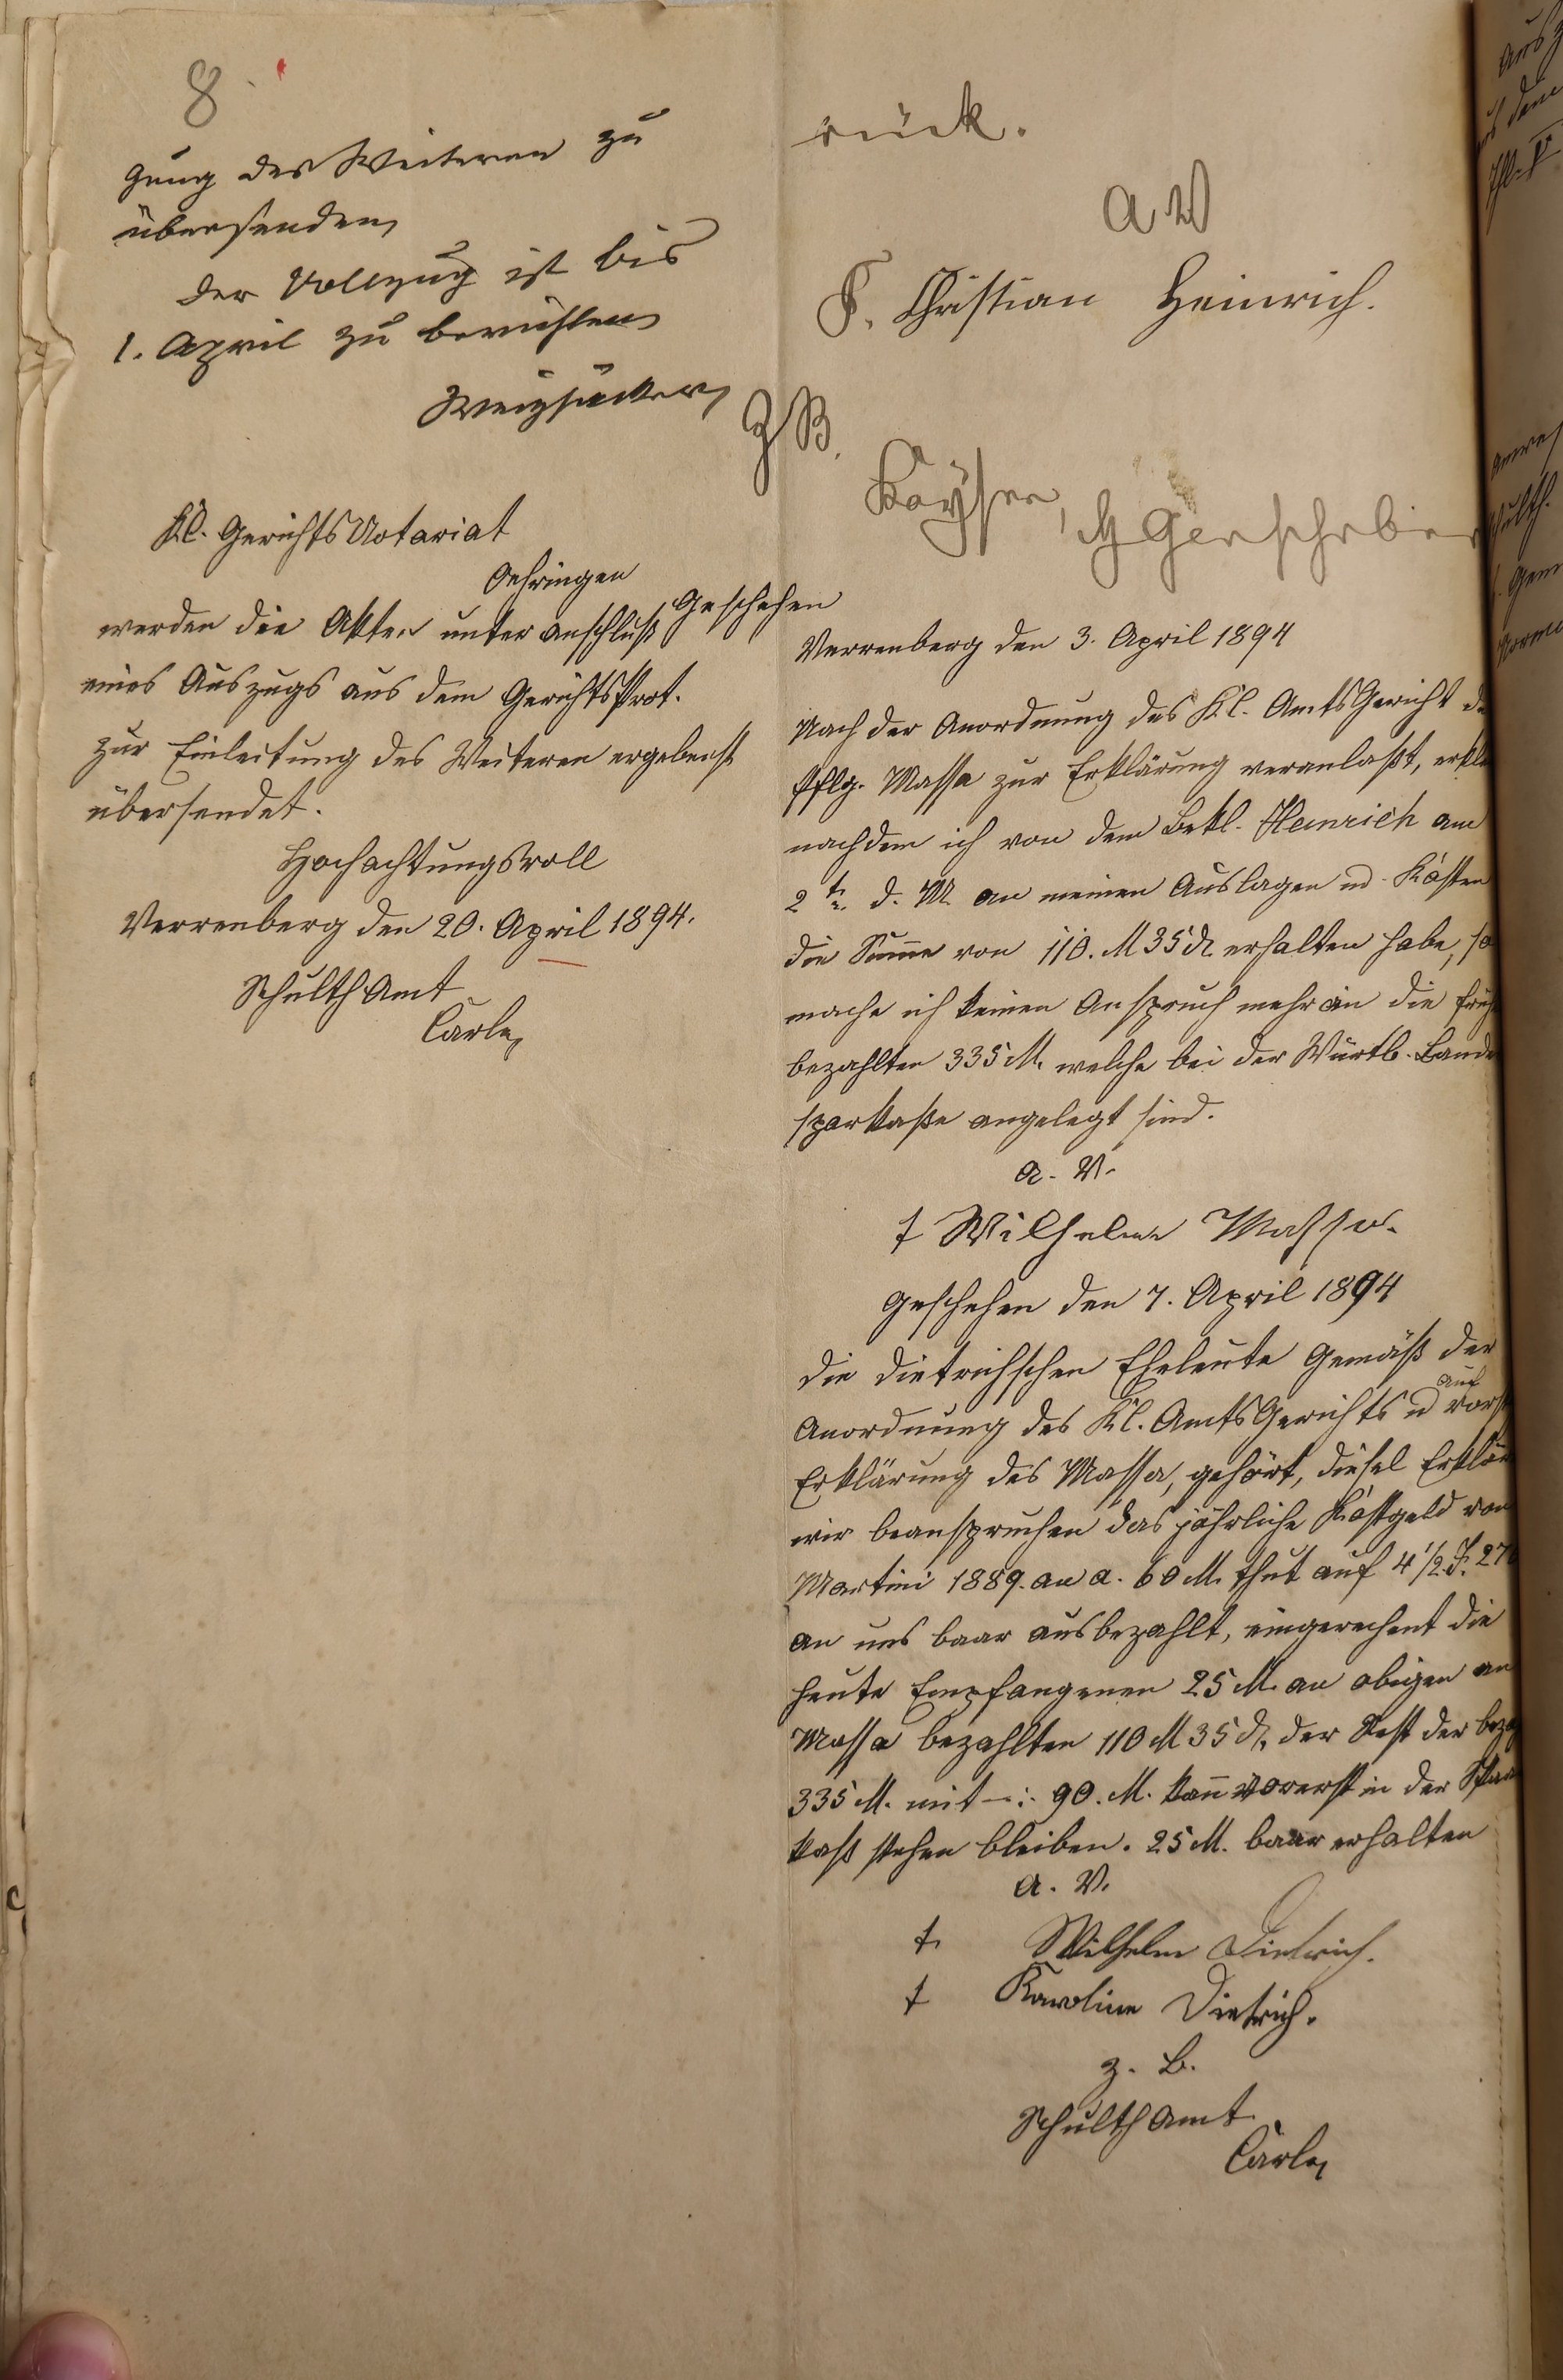 8.
gung des Weiteren zu
übersenden,
der Vollzug ist bis
1. April zu berichten
Weizsäcker,
Kl. GerichtsNotariat
Oehringen
werden die Akten unter Anschluß
eines Auszugs aus dem GerichtsProt.
zur Einleitung des Weiteren ergebenst
übersendet.
Hochachtungsvoll
Verrenberg den 20. April 1894.
SchulthAmt
Carle,
rück.
a V
F. Christian Heinrich.
Z B.
Kayser,
Geschehen
Verrenberg den 3. April 1894
Nach der Anordnung des Kl. AmtsGericht
Pflg. Massa zur Erklärung veranlaßt,
nachdem ich von dem Bekl. Heinrich am
2 t. d. M. an meinen Auslagen ud. Kosten
die Summe von 110. M 35 d. erhalten habe, so
mache ich keinen Anspruch mehr an die
bezahlten 335 M. welche bei der Württb.
sparkaße angelegt sind.
a. V.
† Wilhelm Massa.
Geschehen den 7. April 1894
die dietrichschen Eheleute Gemäß der
auf
Anordnung des Kl. AmtsGerichts u
Erklärung des Massa, gehört,
wir beanspruchen das jährliche Kostgeld von
Martini 1889. an a. 60 M. thut auf 4 1/2 J.
an uns baar ausbezahlt, eingerechent die
heute Empfangenen 25 M. an obigen an
Massa bezahlten 110 M 35 d, der Rest der
335 M. mit -:- 90. M. kann vorerst in der
kaß stehen bleiben. 25 M. baar erhalten
a. V.
† Wilhelm Dietrich.
† Karoline Dietrich.
z. B.
SchulthAmt.
Carle,